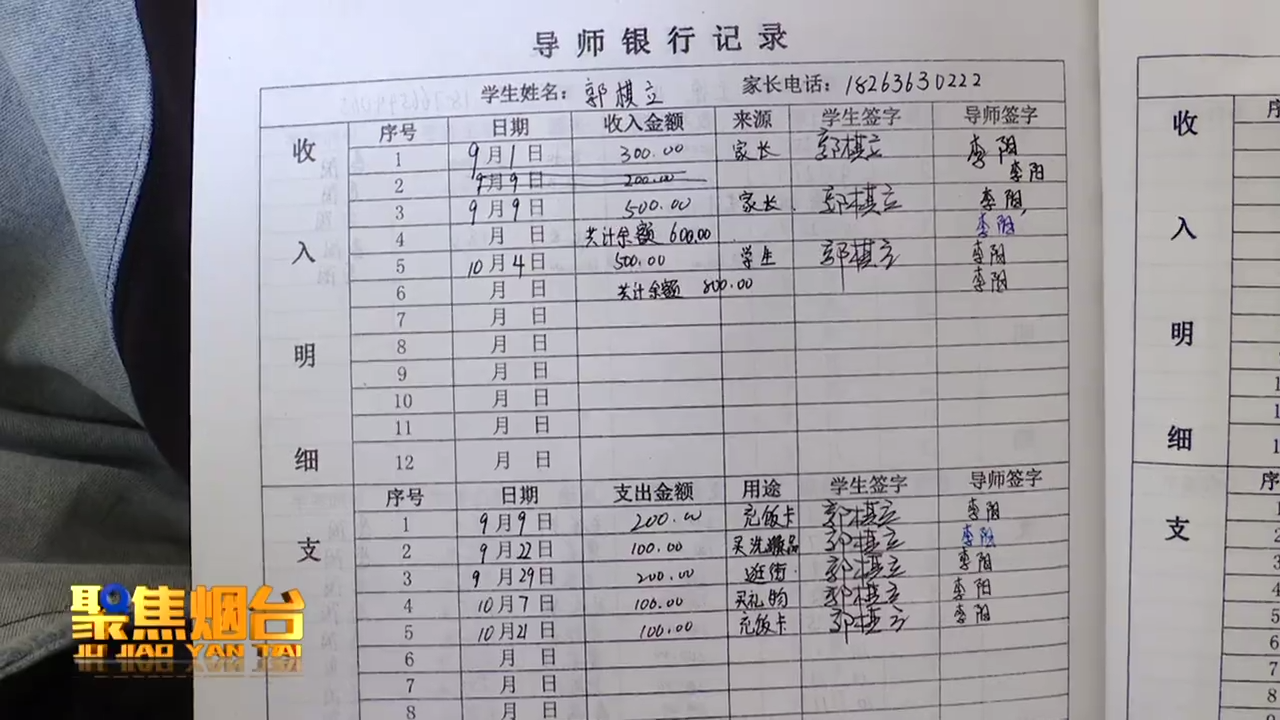 导师银行记录
学生姓名：郭棋立 家长电话：18263630222
收入明细
序号 日期 收入金额 来源 学生签字 导师签字
1 9月1日 300.00 家长 郭棋立 李阳
2 9月9日 200.00 李阳
3 9月9日 500.00 家长 郭棋立 李阳
4 月 日 共计余额 600.00 李阳
5 10月4日 500.00 学生 郭棋立 李阳
6 月 日 共计余额 800.00 李阳
7 月 日
8 月 日
9 月 日
10 月 日
11 月 日
12 月 日
支
序号 日期 支出金额 用途 学生签字 导师签字
1 9月9日 200.00 充饭卡 郭棋立 李阳
2 9月22日 100.00 买洗澡品 郭棋立 李阳
3 9月29日 200.00 逛街 郭棋立 李阳
4 10月7日 100.00 买礼物 郭棋立 李阳
5 10月21日 100.00 充饭卡 郭棋立 李阳
6 月 日
7 月 日
8 月 日
收入明细
支
聚焦烟台
JU JIAO YAN TAI